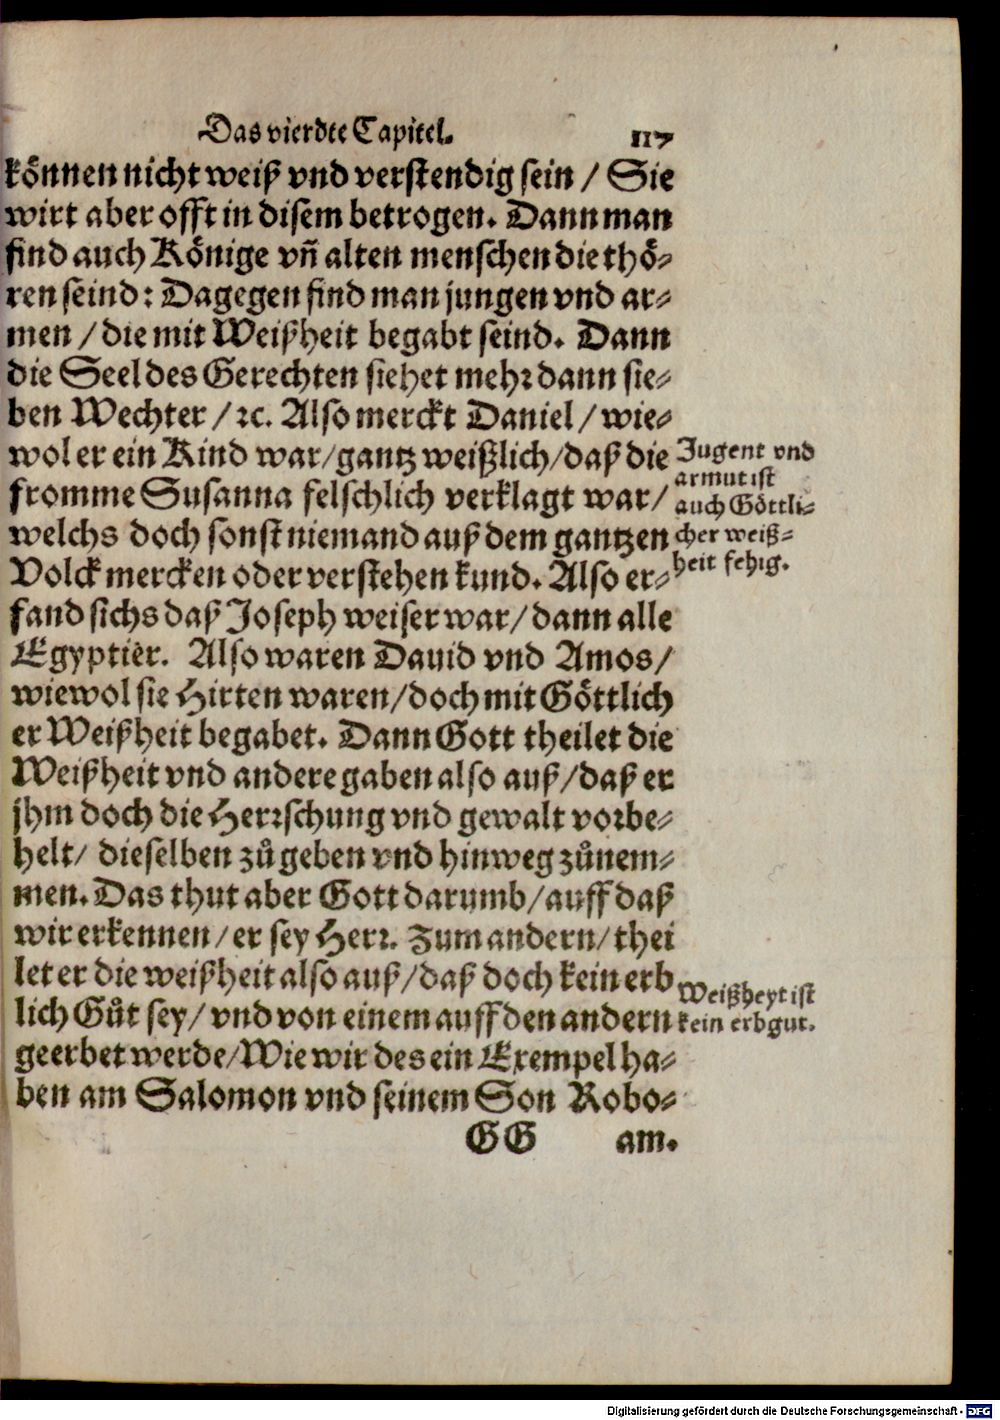 Das vierdte Capitel. 117
können nicht weiß vnd verstendig sein / Sie
wirt aber offt in disem betrogen. Dann man
find auch Könige vñ alten menschen die thö⸗
ren seind: Dagegen find man jungen vnd ar⸗
men / die mit Weißheit begabt seind. Dann
die Seel des Gerechten siehet mehr dann sie⸗
ben Wechter / ꝛc. Also merckt Daniel / wie⸗
wol er ein Kind war/gantz weißlich/daß die
fromme Susanna felschlich verklagt war/
welchs doch sonst niemand auß dem gantzen
Volck mercken oder verstehen kund. Also er⸗
fand sichs daß Joseph weiser war/ dann alle
Egyptier. Also waren Dauid vnd Amos/
wiewol sie Hirten waren/doch mit Göttlich
er Weißheit begabet. Dann Gott theilet die
Weißheit vnd andere gaben also auß/daß er
jhm doch die Herrschung vnd gewalt vorbe⸗
helt/ dieselben zů geben vnd hinweg zůnem⸗
men. Das thut aber Gott darumb/auff daß
wir erkennen/er sey Herr. Zum andern/thei
let er die weißheit also auß/daß doch kein erb
lich Gůt sey/ vnd von einem auff den andern
geerbet werde/Wie wir des ein Exempel ha⸗
ben am Salomon vnd seinem Son Robo⸗
GG am.
Jugent vnd
armut ist
auch Göttli⸗
cher weiß⸗
heit fehig.
Weißheyt ist
kein erbgut.
Digitalisierung gefördert durch die Deutsche Forschungsgemeinschaft - DFG